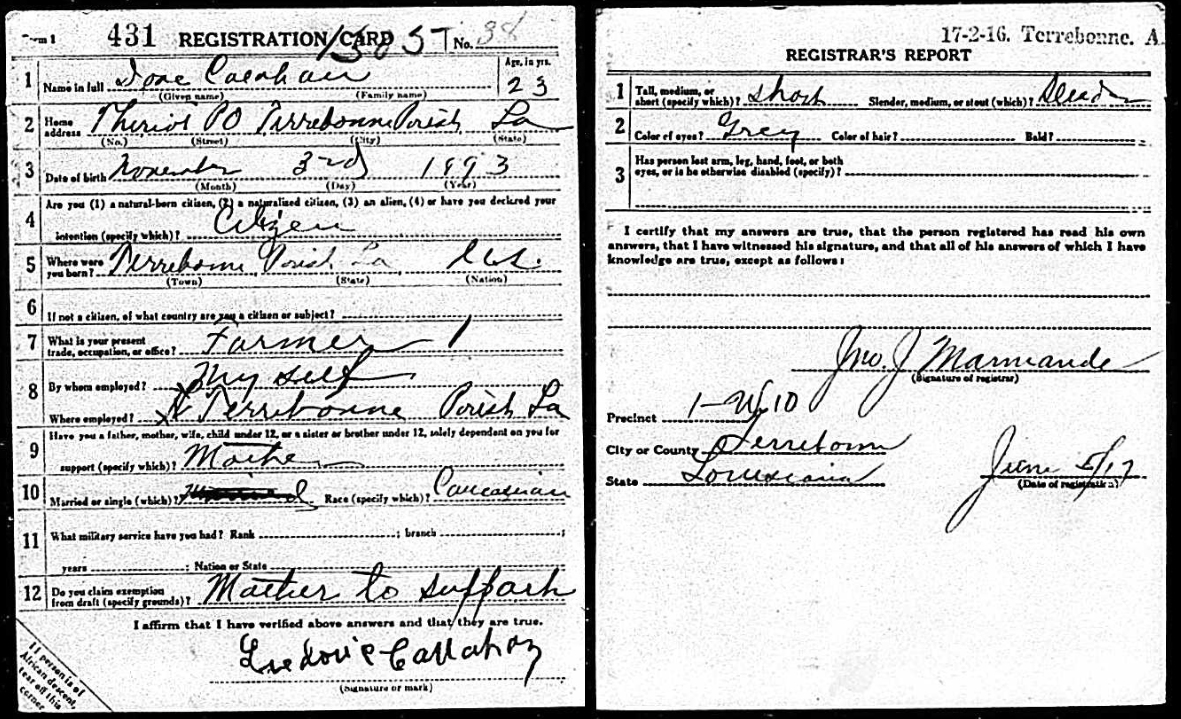 Form 1 431 REGISTRATION CARD 30 ST No. 38
1 Name in full Dore Calahan Age, in yrs. 23
(Given name) (Family name)
2 Home address Theriot PO Terrebonne Parish La
(No.) (Street) (City) (State)
3 Date of birth November 3rd 1893
(Month) (Day) (Year)
4 Are you (1) a natural-born citizen, (2) a naturalized citizen, (3) an alien, (4) or have you declared your
intention (specify which)? Citizen
5 Where were you born? Terrebonne Parish La U.S.
(Town) (State) (Nation)
6 If not a citizen, of what country are you a citizen or subject?
7 What is your present trade, occupation, or office? Farmer 1
8 By whom employed? My self
Where employed? Terrebonne Parish La
9 Have you a father, mother, wife, child under 12, or a sister or brother under 12, solely dependent on you for
support (specify which)? Mother
10 Married or single (which)? Race (specify which)? Caucasian
11 What military service have you had? Rank ; branch ;
years ; Nation or State
12 Do you claim exemption from draft (specify grounds)? Mother to support
I affirm that I have verified above answers and that they are true.
Callahan
(Signature or mark)
If person is of African descent, tear off this corner.
17-2-16. Terrebonne. A
REGISTRAR'S REPORT
1 Tall, medium, or short (specify which)? Short Slender, medium, or stout (which)? Slender
2 Color of eyes? Grey Color of hair? Bald?
3 Has person lost arm, leg, hand, foot, or both
eyes, or is he otherwise disabled (specify)?
I certify that my answers are true, that the person registered has read his own
answers, that I have witnessed his signature, and that all of his answers of which I have
knowledge are true, except as follows:
Jno. J Marmande
(Signature of registrar)
Precinct 1-W 10
City or County Terrebonne
State Louisiana June 5/17
(Date of registration)